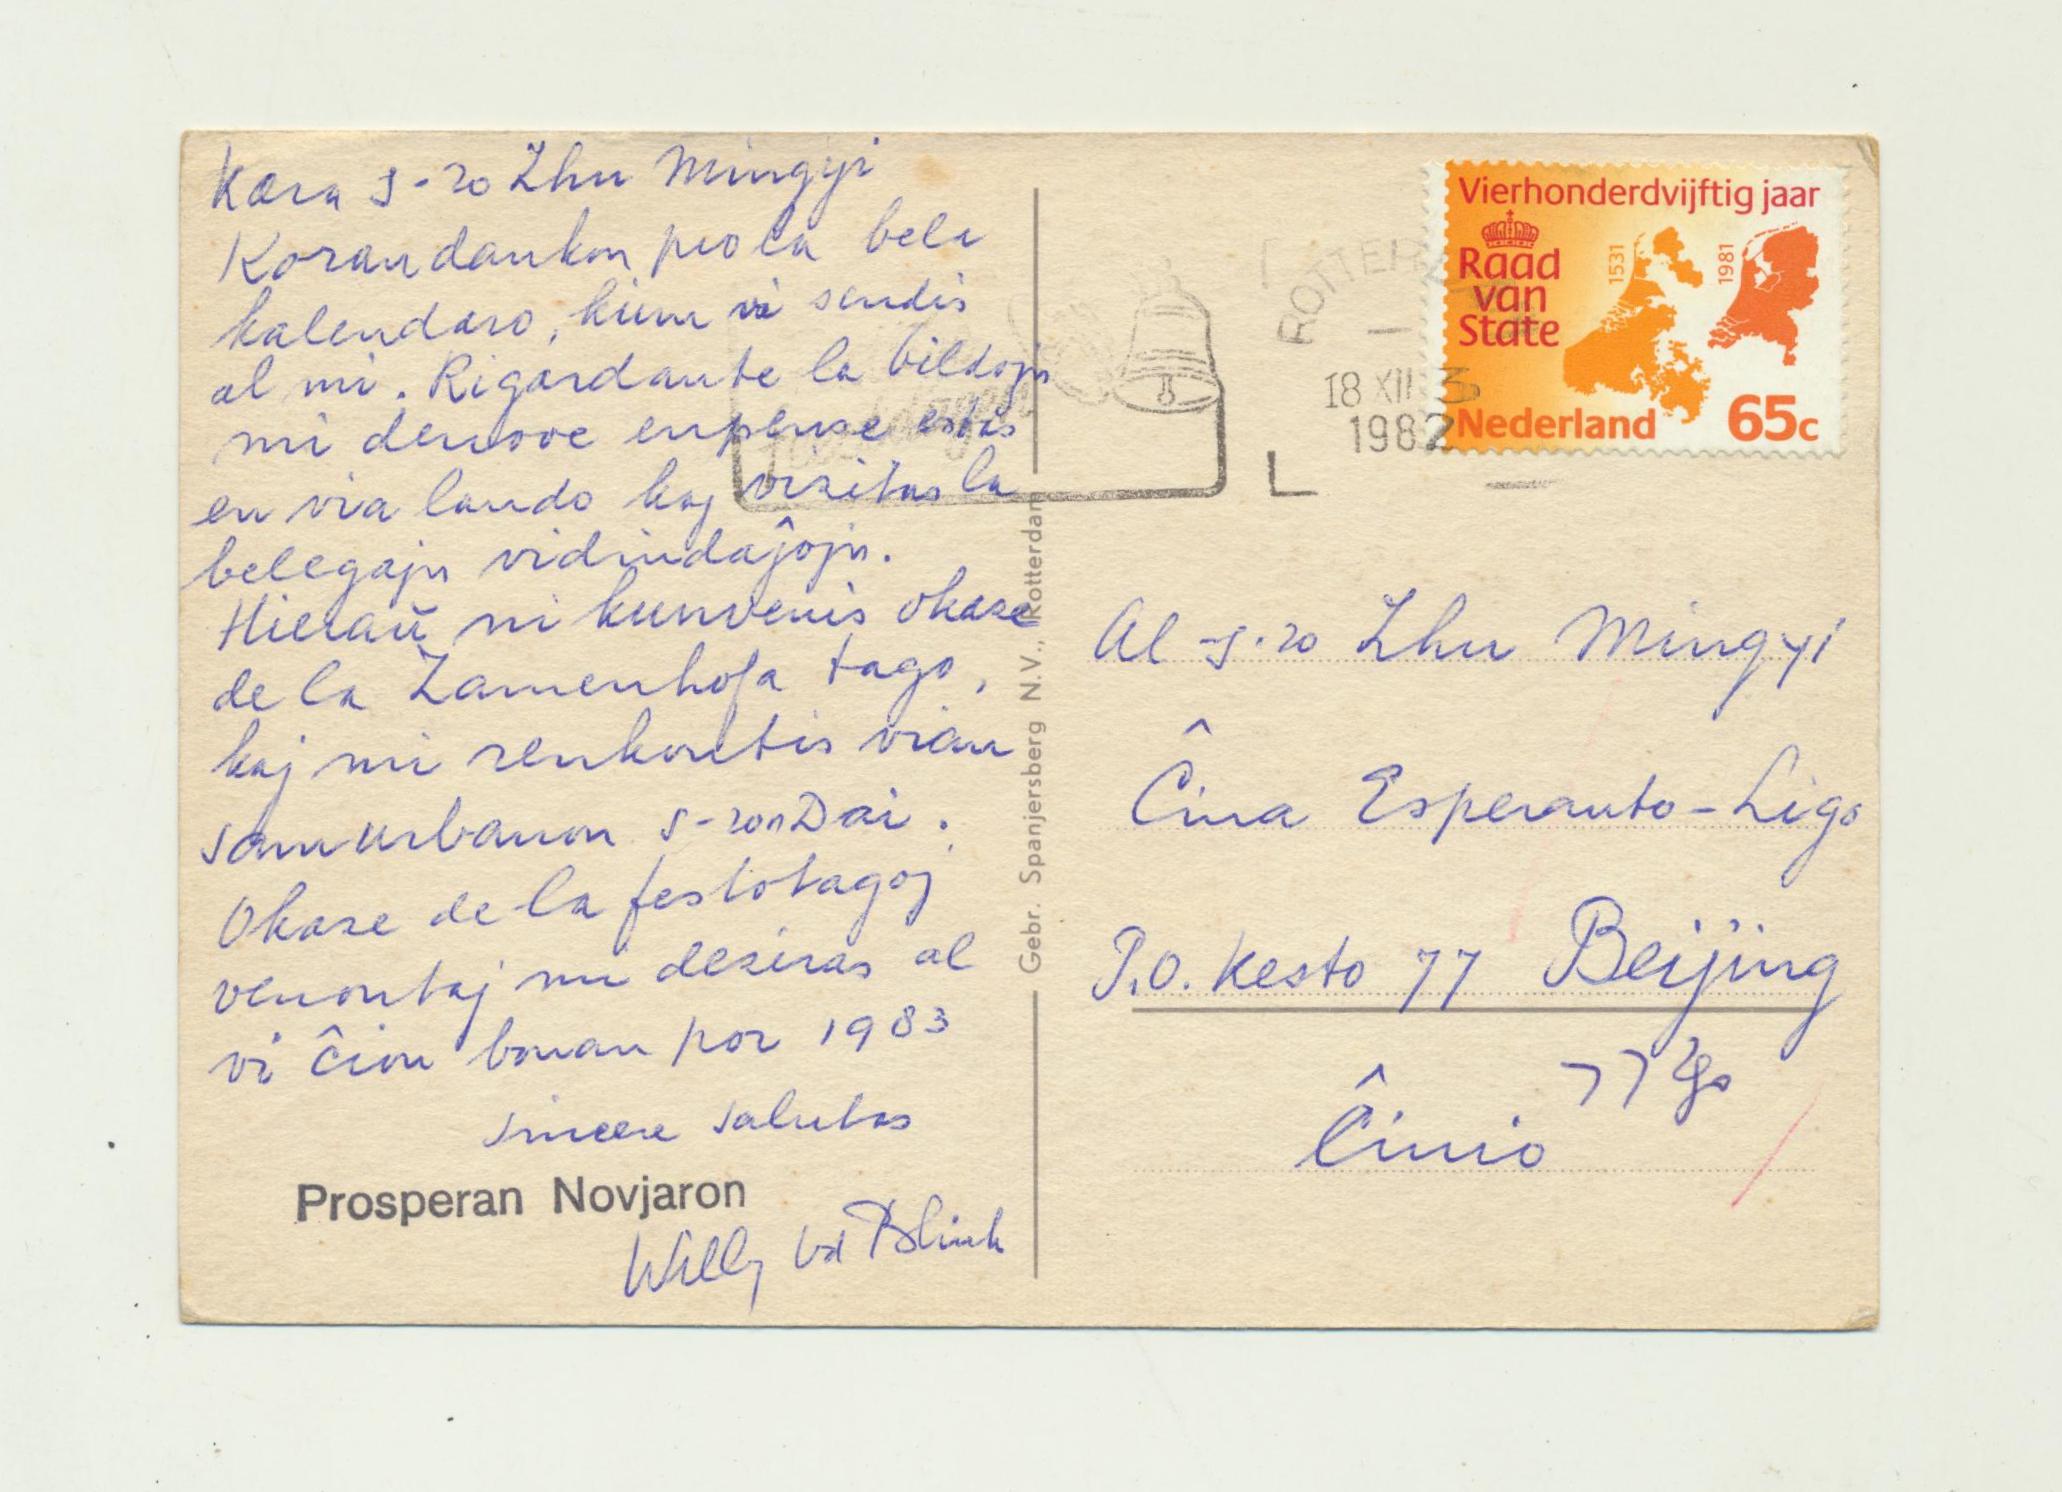 Kara s-ro Zhu Mingyi
Koran dankon pro la bela
kalendaro, kiun vi sendis
al mi. Rigardante la bildojn
mi denove enpense estis
en via lando kaj vizitas la
belegajn vidindaĵojn.
Hieraŭ ni kunvenis okaze
de la Zamenhofa tago,
kaj mi renkontis vian
samurbanon s-ron Dai.
Okaze de la festotagoj
venontaj mi deziras al
vi ĉion bonan por 1983
sincere salutas
Prosperan Novjaron
Willy vd Blink
Gebr. Spanjersberg N.V., Rotterdam
ROTTERDAM
18 XII
1982
Vierhonderdvijftig jaar
Raad
van
State
1531
1981
Nederland 65c
Al s-ro Zhu Mingyi
Ĉina Esperanto-Ligo
P.O. Kesto 77 Beijing
77
Ĉinio